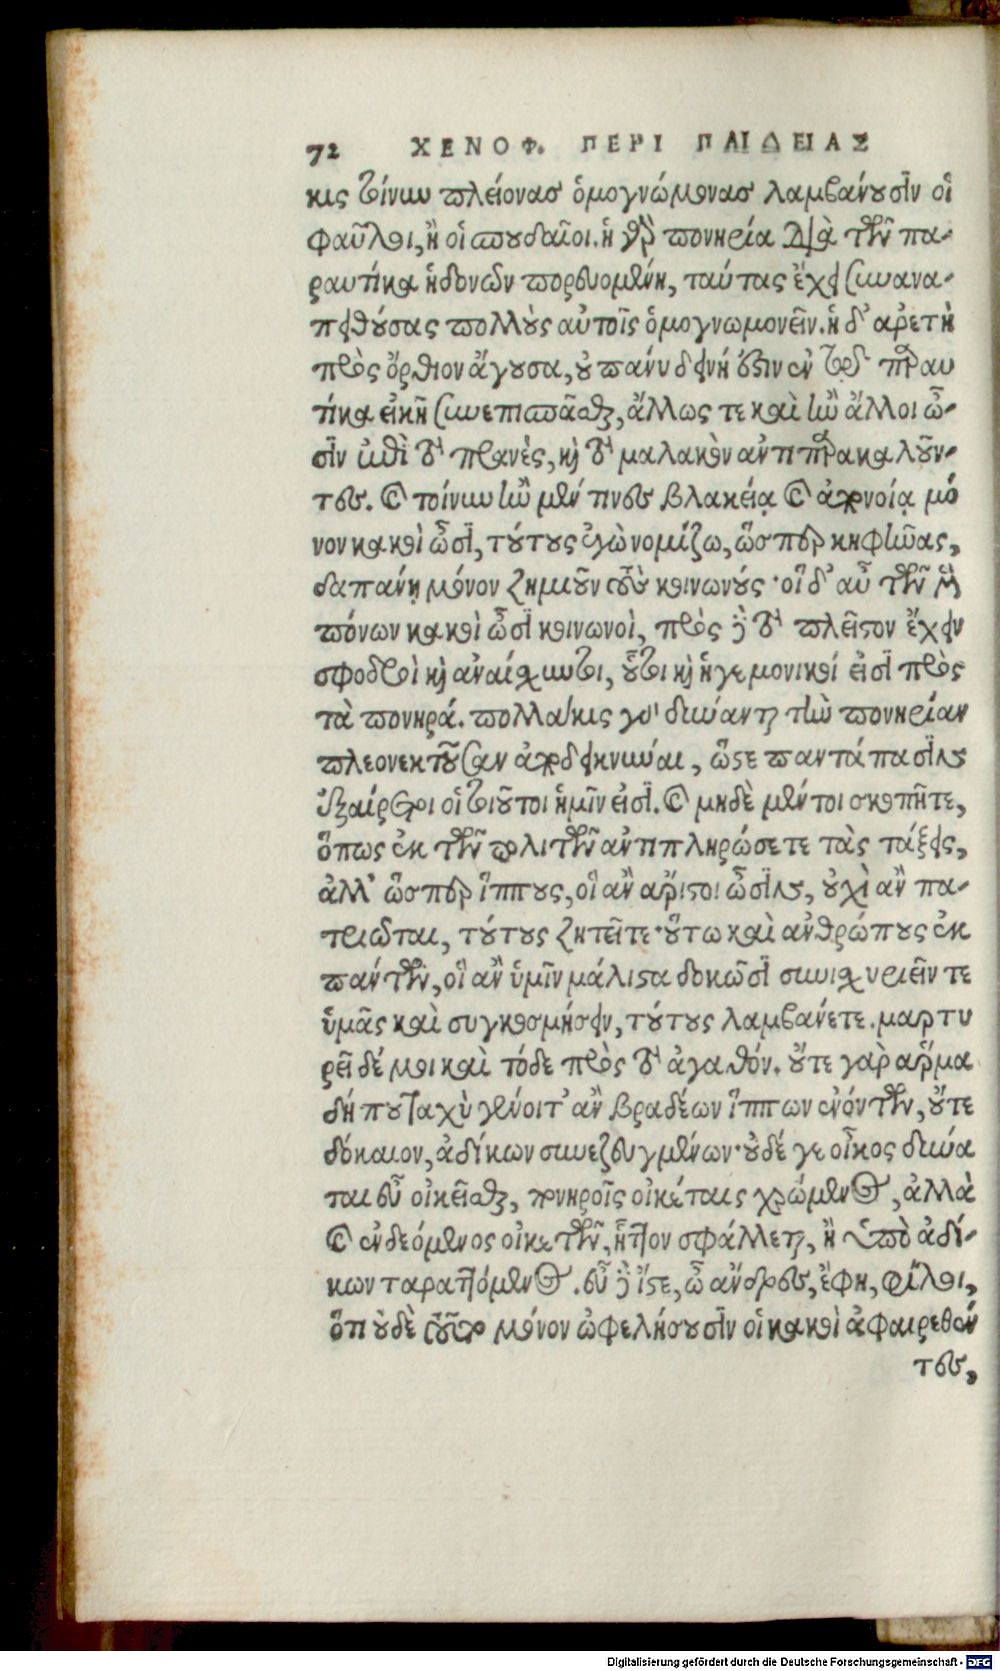 72 ΧΕΝΟΦ. ΠΕΡΙ ΠΑΙΔΕΙΑΣ
κις τοίνυν πλείονας ὁμογνώμονας λαμβάνουσιν οἱ
φαῦλοι, ἢ οἱ σπουδαῖοι. ἡ γὰρ πονηρία διὰ τῶν πα-
ραυτίκα ἡδονῶν πορευομένη, ταύτας ἔχει συνανα-
πειθούσας πολλοὺς αὐτοῖς ὁμογνωμονεῖν. ἡ δ' ἀρετὴ
πρὸς ὄρθιον ἄγουσα, οὐ πάνυ δεινή ἐστιν ἐν τῷ παραυ
τίκα εἰκῆ συνεπισπᾶσθαι, ἄλλως τε καὶ ἢν ἄλλοι ὦ-
σιν ἐπὶ τὸ πρανὲς, καὶ τὸ μαλακὸν ἀντιπαρακαλοῦν-
τες. καὶ τοίνυν ἢν μέν τινες βλακείᾳ καὶ ἀπονοίᾳ μό
νον κακοὶ ὦσι, τούτους ἐγὼ νομίζω, ὥσπερ κηφῆνας,
δαπάνῃ μόνον ζημιοῦν τοὺς κοινωνούς· οἳ δ' αὖ τῶν μὲν
πόνων κακοὶ ὦσι κοινωνοὶ, πρὸς δὲ τὸ πλεῖστον ἔχειν
σφοδροὶ καὶ ἀναίσχυντοι, οὗτοι καὶ ἡγεμονικοί εἰσι πρὸς
τὰ πονηρά. πολλάκις γὰρ δύνανται τὴν πονηρίαν
πλεονεκτοῦσαν ἀποδεικνύναι, ὥστε παντάπασιν
ἐξαιρετέοι οἱ τοιοῦτοι ἡμῖν εἰσι. καὶ μηδὲ μέντοι σκοπῆτε,
ὅπως ἐκ τῶν πολιτῶν ἀντιπληρώσετε τὰς τάξεις,
ἀλλ' ὥσπερ ἵππους, οἳ ἂν ἄριστοι ὦσιν, οὐχὶ ἂν πα-
τριῶται, τούτους ζητεῖτε· οὕτω καὶ ἀνθρώπους ἐκ
πάντων, οἳ ἂν ὑμῖν μάλιστα δοκῶσι συνισχυριεῖν τε
ὑμᾶς καὶ συγκοσμήσειν, τούτους λαμβάνετε. μαρτυ
ρεῖ δέ μοι καὶ τόδε πρὸς τὸ ἀγαθόν. οὔτε γὰρ ἅρμα
δήπου ταχὺ γένοιτ' ἂν βραδέων ἵππων ἐνόντων, οὔτε
δίκαιον, ἀδίκων συνεζευγμένων· οὐδέ γε οἶκος δύνα
ται εὖ οἰκεῖσθαι, πονηροῖς οἰκέταις χρώμενος, ἀλλὰ
καὶ ἐνδεόμενος οἰκετῶν, ἧττον σφάλλεται, ἢ ὑπὸ ἀδί-
κων ταραττόμενος. εὖ δὲ ἴστε, ὦ ἄνδρες, ἔφη, φίλοι,
ὅτι οὐδὲ τοῦτο μόνον ὠφελήσουσιν οἱ κακοὶ ἀφαιρεθέν
τες,
Digitalisierung gefördert durch die Deutsche Forschungsgemeinschaft - DFG